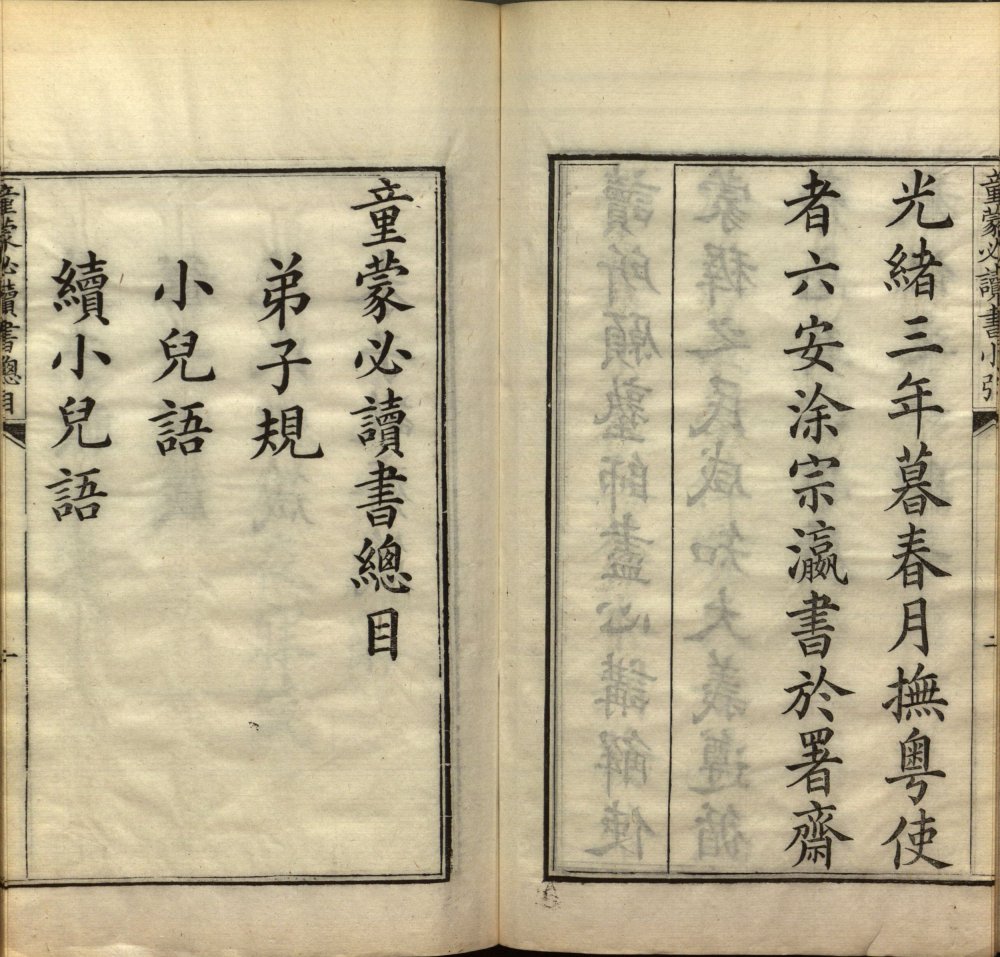 童蒙必讀書小引
二
光緒三年暮春月撫粵使
者六安涂宗瀛書於署齋
童蒙必讀書總目
弟子規
小兒語
續小兒語
童蒙必讀書總目
一